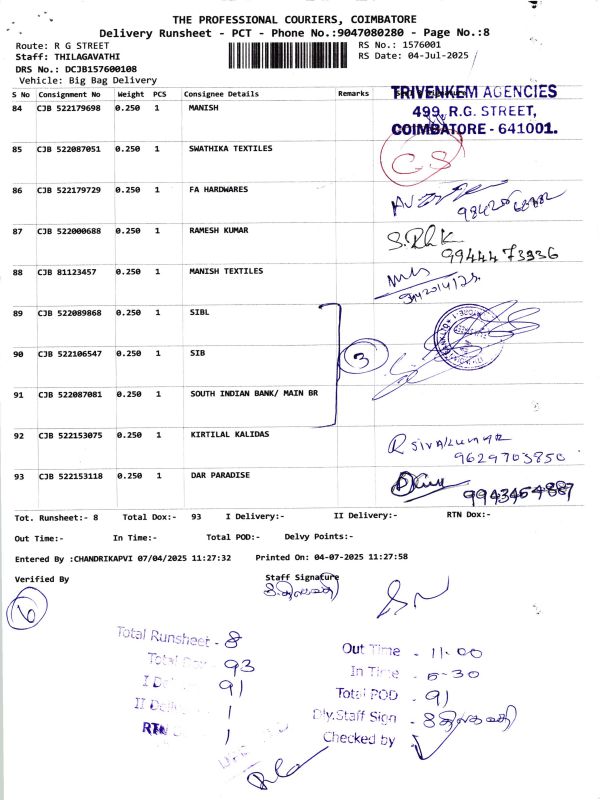 THE PROFESSIONAL COURIERS, COIMBATORE
Delivery Runsheet - PCT - Phone No.:9047080280 - Page No.:8
Route: R G STREET
RS No.: 1576001
Staff: THILAGAVATHI
RS Date: 04-Jul-2025
DRS No.: DCJB157600108
Vehicle: Big Bag Delivery
S No Consignment No Weight PCS Consignee Details Remarks
TRIVENKEM AGENCIES
499, R.G. STREET,
COIMBATORE - 641001.
84 CJB 522179698 0.250 1 MANISH
85 CJB 522087051 0.250 1 SWATHIKA TEXTILES
86 CJB 522179729 0.250 1 FA HARDWARES
87 CJB 522000688 0.250 1 RAMESH KUMAR
9944473936
88 CJB 81123457 0.250 1 MANISH TEXTILES
89 CJB 522089868 0.250 1 SIBL
90 CJB 522106547 0.250 1 SIB
3
91 CJB 522087081 0.250 1 SOUTH INDIAN BANK/ MAIN BR
92 CJB 522153075 0.250 1 KIRTILAL KALIDAS
R SIVAKUMAR
9629703850
93 CJB 522153118 0.250 1 DAR PARADISE
Tot. Runsheet:- 8 Total Dox:- 93 I Delivery:- II Delivery:- RTN Dox:-
Out Time:- In Time:- Total POD:- Delvy Points:-
Entered By :CHANDRIKAPVI 07/04/2025 11:27:32 Printed On: 04-07-2025 11:27:58
Verified By Staff Signature
6
Total Runsheet - 8
Total 93
I De 91
II Deli 1
RTN 1
Out Time - 11-00
In Time - 5-30
Total POD - 91
Dly.Staff Sign -
Checked by